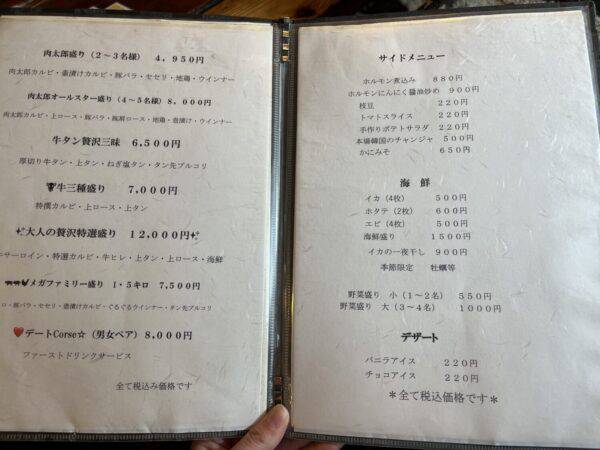 肉太郎盛り（2～3名様） 4,950円
肉太郎カルビ・壷漬けカルビ・豚バラ・セセリ・地鶏・ウインナー
肉太郎オールスター盛り（4～5名様）8,000円
肉太郎カルビ・上ロース・豚バラ・豚肩ロース・地鶏・壷漬け・ウインナー
牛タン贅沢三昧 6,500円
厚切り牛タン・上タン・ねぎ塩タン・タン先プルコリ
牛三種盛り 7,000円
特撰カルビ・上ロース・上タン
大人の贅沢特選盛り 12,000円
牛サーロイン・特選カルビ・牛ヒレ・上タン・上ロース・海鮮
メガファミリー盛り 1・5キロ 7,500円
ロ・豚バラ・セセリ・壷漬けカルビ・ぐるぐるウインナー・タン先プルコリ
❤️デートCorse☆（男女ペア）8,000円
ファーストドリンクサービス
全て税込み価格です
サイドメニュー
ホルモン煮込み 880円
ホルモンにんにく醤油炒め 900円
枝豆 220円
トマトスライス 220円
手作りポテトサラダ 220円
本場韓国のチャンジャ 500円
かにみそ 650円
海 鮮
イカ（4枚） 500円
ホタテ（2枚） 600円
エビ（4枚） 500円
海鮮盛り 1500円
イカの一夜干し 900円
季節限定 牡蠣等
野菜盛り 小（1～2名） 550円
野菜盛り 大（3～4名） 1000円
デザート
バニラアイス 220円
チョコアイス 220円
＊全て税込価格です＊